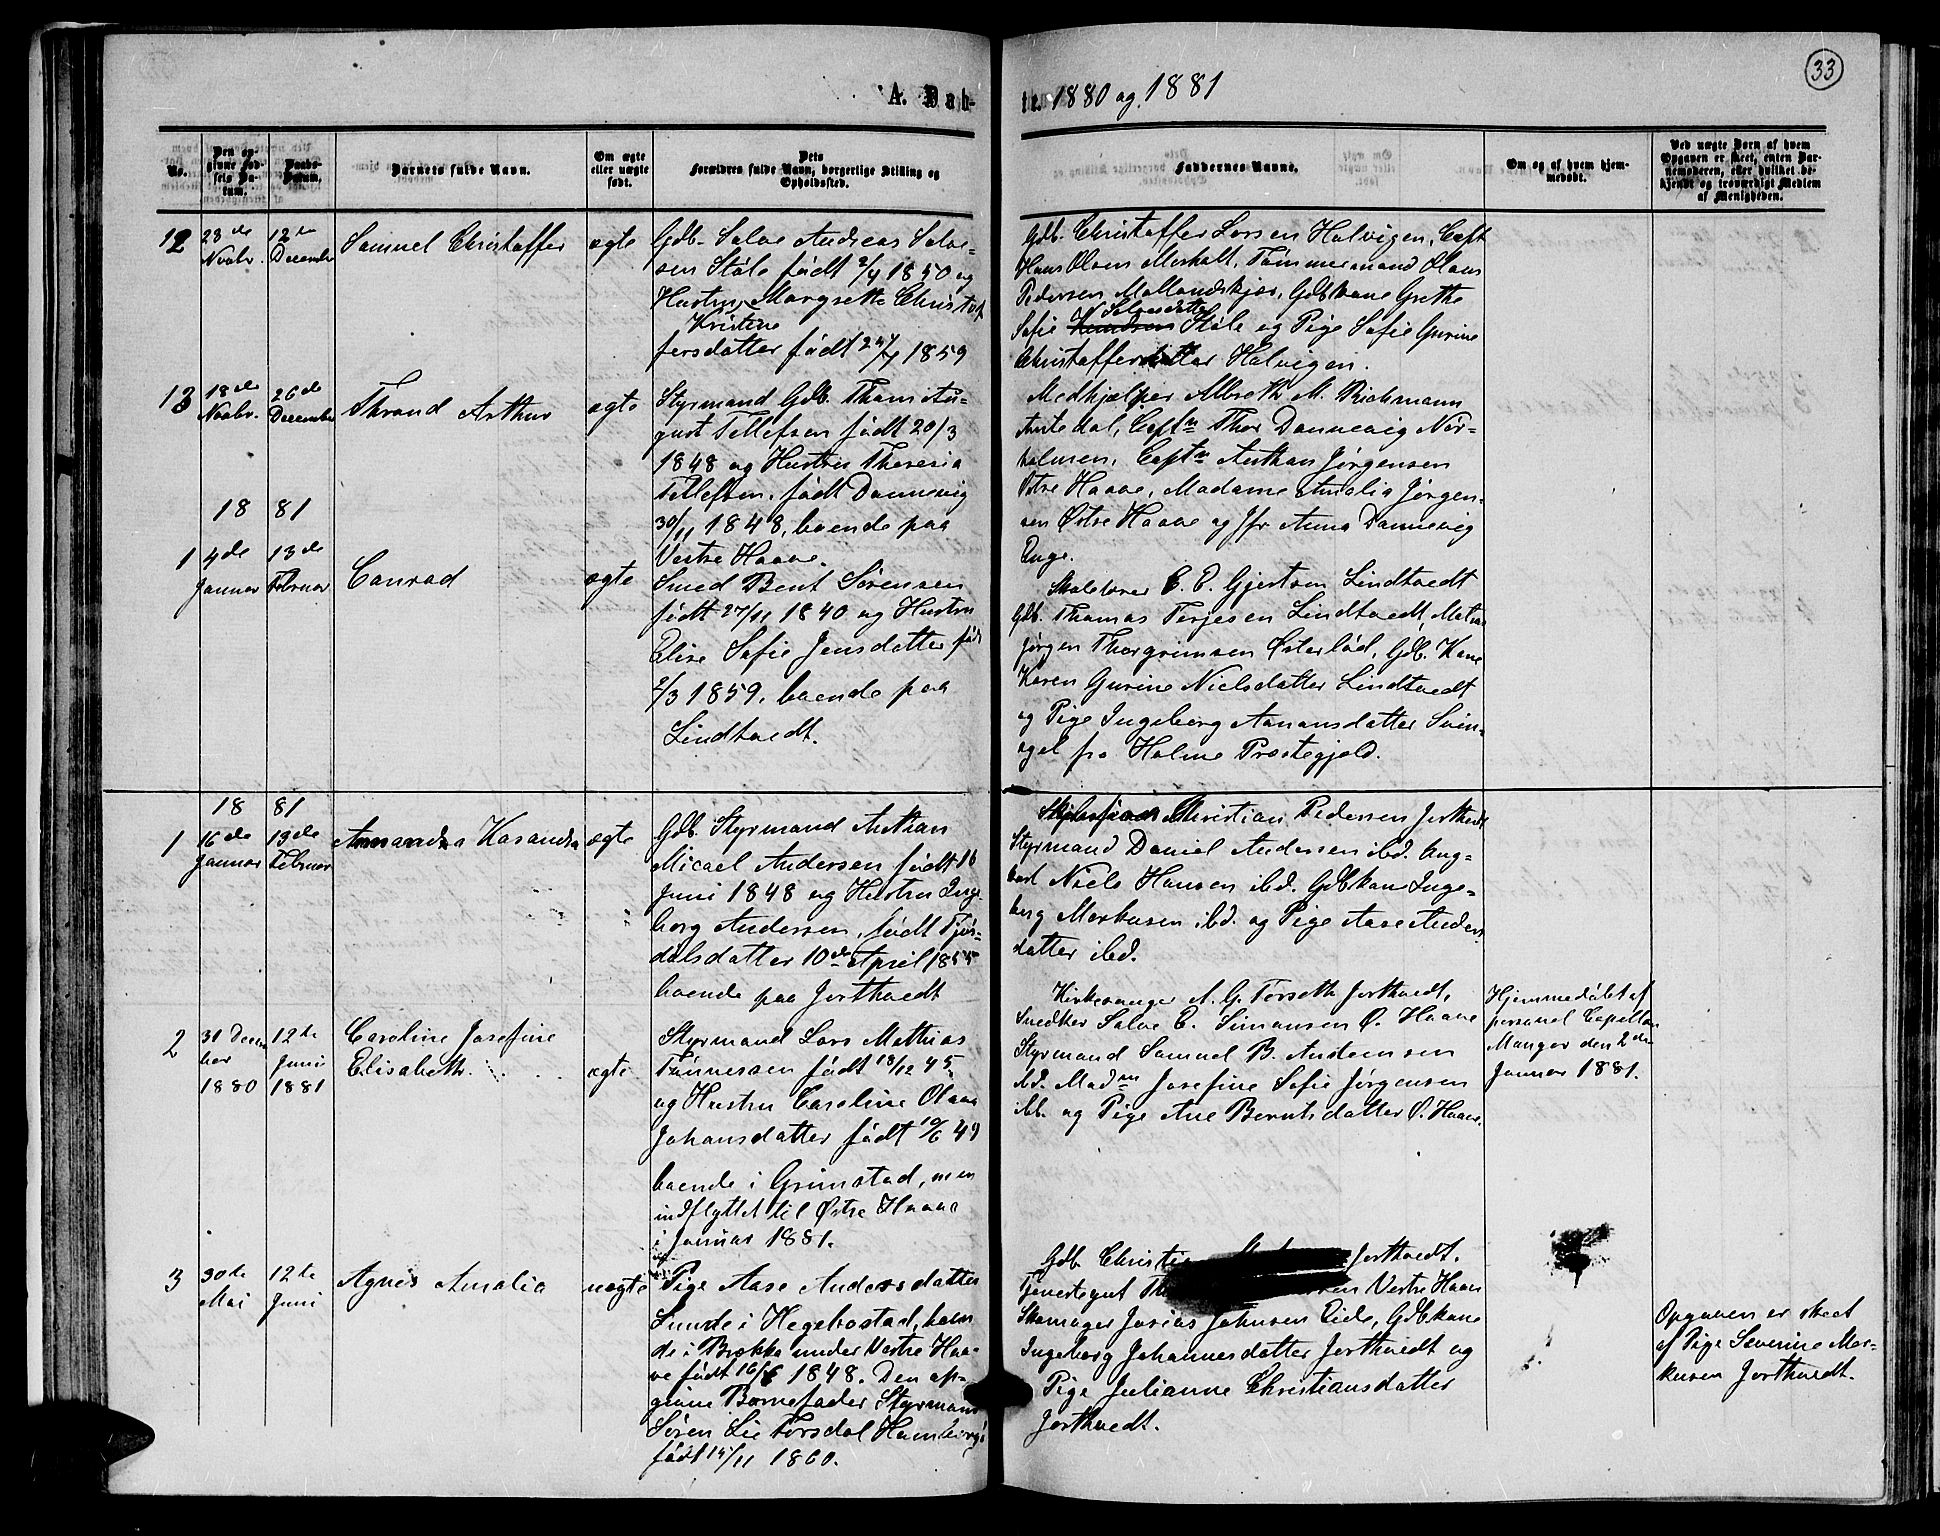 33
A. Dåb-
te. 1880 og 1881
No.
Den op-
givne Fød-
sels Da-
tum.
Daabs-
Datum.
Barnets fulde Navn.
Om ægte
eller uægte
født.
Dets
Forældres fulde Navn, borgerlige Stilling og
Opholdssted.
Faddernes Navne.
Om og af hvem hjem-
medøbt.
Ved uægte Børn af hvem
Opgaven er skeet, enten Bar-
nemoderen, eller hvilket be-
kjendt og troværdigt Medlem
af Menigheden.
12
28de
Novbr.
12te
December
Samuel Christoffer
ægte
Gdb. Salve Andreas Salve-
sen Støle født 2/4 1850 og
Hustru Margrethe Christof
Kristine
fersdatter født 24/4 1859
Gdb. Christoffer Larsen Halvigen, Capt
Hans Olsen Moxholt, Tømmermand Olaus
Pedersen Mollandskjær, Gdbkone Grethe
Salvesdatter
Sofie Knudsen Støle og Pige Sofie Gurine
Christoffersdatter Halvigen.
13
18de
Novbr.
26de
December
Thrond Arthur
ægte
Styrmand Gdb. Thom Au-
gust Tellefsen født 20/3
1848 og Hustru Theresia
Tellefsen, født Dannevig
30/11 1848, boende paa
Vestre Haave.
Medhjælper Albreth M. Richmann
Amtedal, Captn Thor Dannevig Nør-
holmen, Captn Anthon Jørgensen
Østre Haave, Madame Amalia Jørgen-
sen Østre Haave og Jfr Anna Dannevig
Enge.
18 81
1
4de
Januar
13de
Februar
Conrad
ægte
Smed Bent Sørensen
født 27/11 1840 og Hustru
Elise Sofie Jensdatter født
2/3 1859, boende paa
Lindtvedt.
Skolelærer E. O. Gjertsen Lindtvedt
Gdb. Thomas Terjesen Lindtvedt, Matros
Jørgen Thorgrimsen Østerlød, Gdb. Kone
Karen Gurine Nielsdatter Lindtvedt
og Pige Ingeborg Aanonsdatter Svin-
agel fra Holme Præstegjeld.
18 81
1
16de
Januar
13de
Februar
Amanda Kasandra
ægte
Gdb. Styrmand Anthon
Micael Andersen født 16
Juni 1848 og Hustru Inge-
borg Andersen, født Fjør-
dalsdatter 10de April 1855
boende paa Jortveidt
Christian Pedersen Jorthvedt
Styrmand Daniel Andersen ibd. Ung-
karl Niels Hansen ibd. Gdbkone Inge-
borg Markusen ibd. og Pige Aase Anders
datter ibd.
2
31 Decem
ber
1880
12te
Juni
1881
Caroline Josefine
Elisabeth.
ægte
Styrmand Lars Mathias
Tønnessen født 18/12 45
og Hustru Caroline Olava
Johansdatter født 10/6 49
boende i Grimstad, men
indflyttet til Østre Haave
i Januar 1881.
Kirkesanger A. G. Torseth Jorthvedt,
Snedker Salve C. Simonsen Ø. Haave
Styrmand Samuel B. Andersen
ibd. Madm Josefine Sofie Jørgensen
ibd. og Pige Ane Berntsdatter Ø. Haave.
Hjemmedøbt af
personel Capellan
Manger den 2den
Januar 1881.
3
30te
Mai
12te
Juni
Agnes Amalia
uægte
Pige Aase Andersdatter
Sunde i Hegebostad, boen
de i Brække under Vestre Haa-
ve født 16/6 1848. Den op-
givne Barnefader Styrmand
Søren Lie Torsdal Homborg
født 15/11 1860.
Gdb. Christian Jorthvedt.
Tjenestegut Vestre Haave
Skomager Josias Johnsen Eide, Gdbkone
Ingeborg Johannesdatter Jorthveidt og
Pige Julianne Christiansdatter
Jorthvedt.
Opgaven er skeet
af Pige Severine Mar-
kusen Jorthvedt.